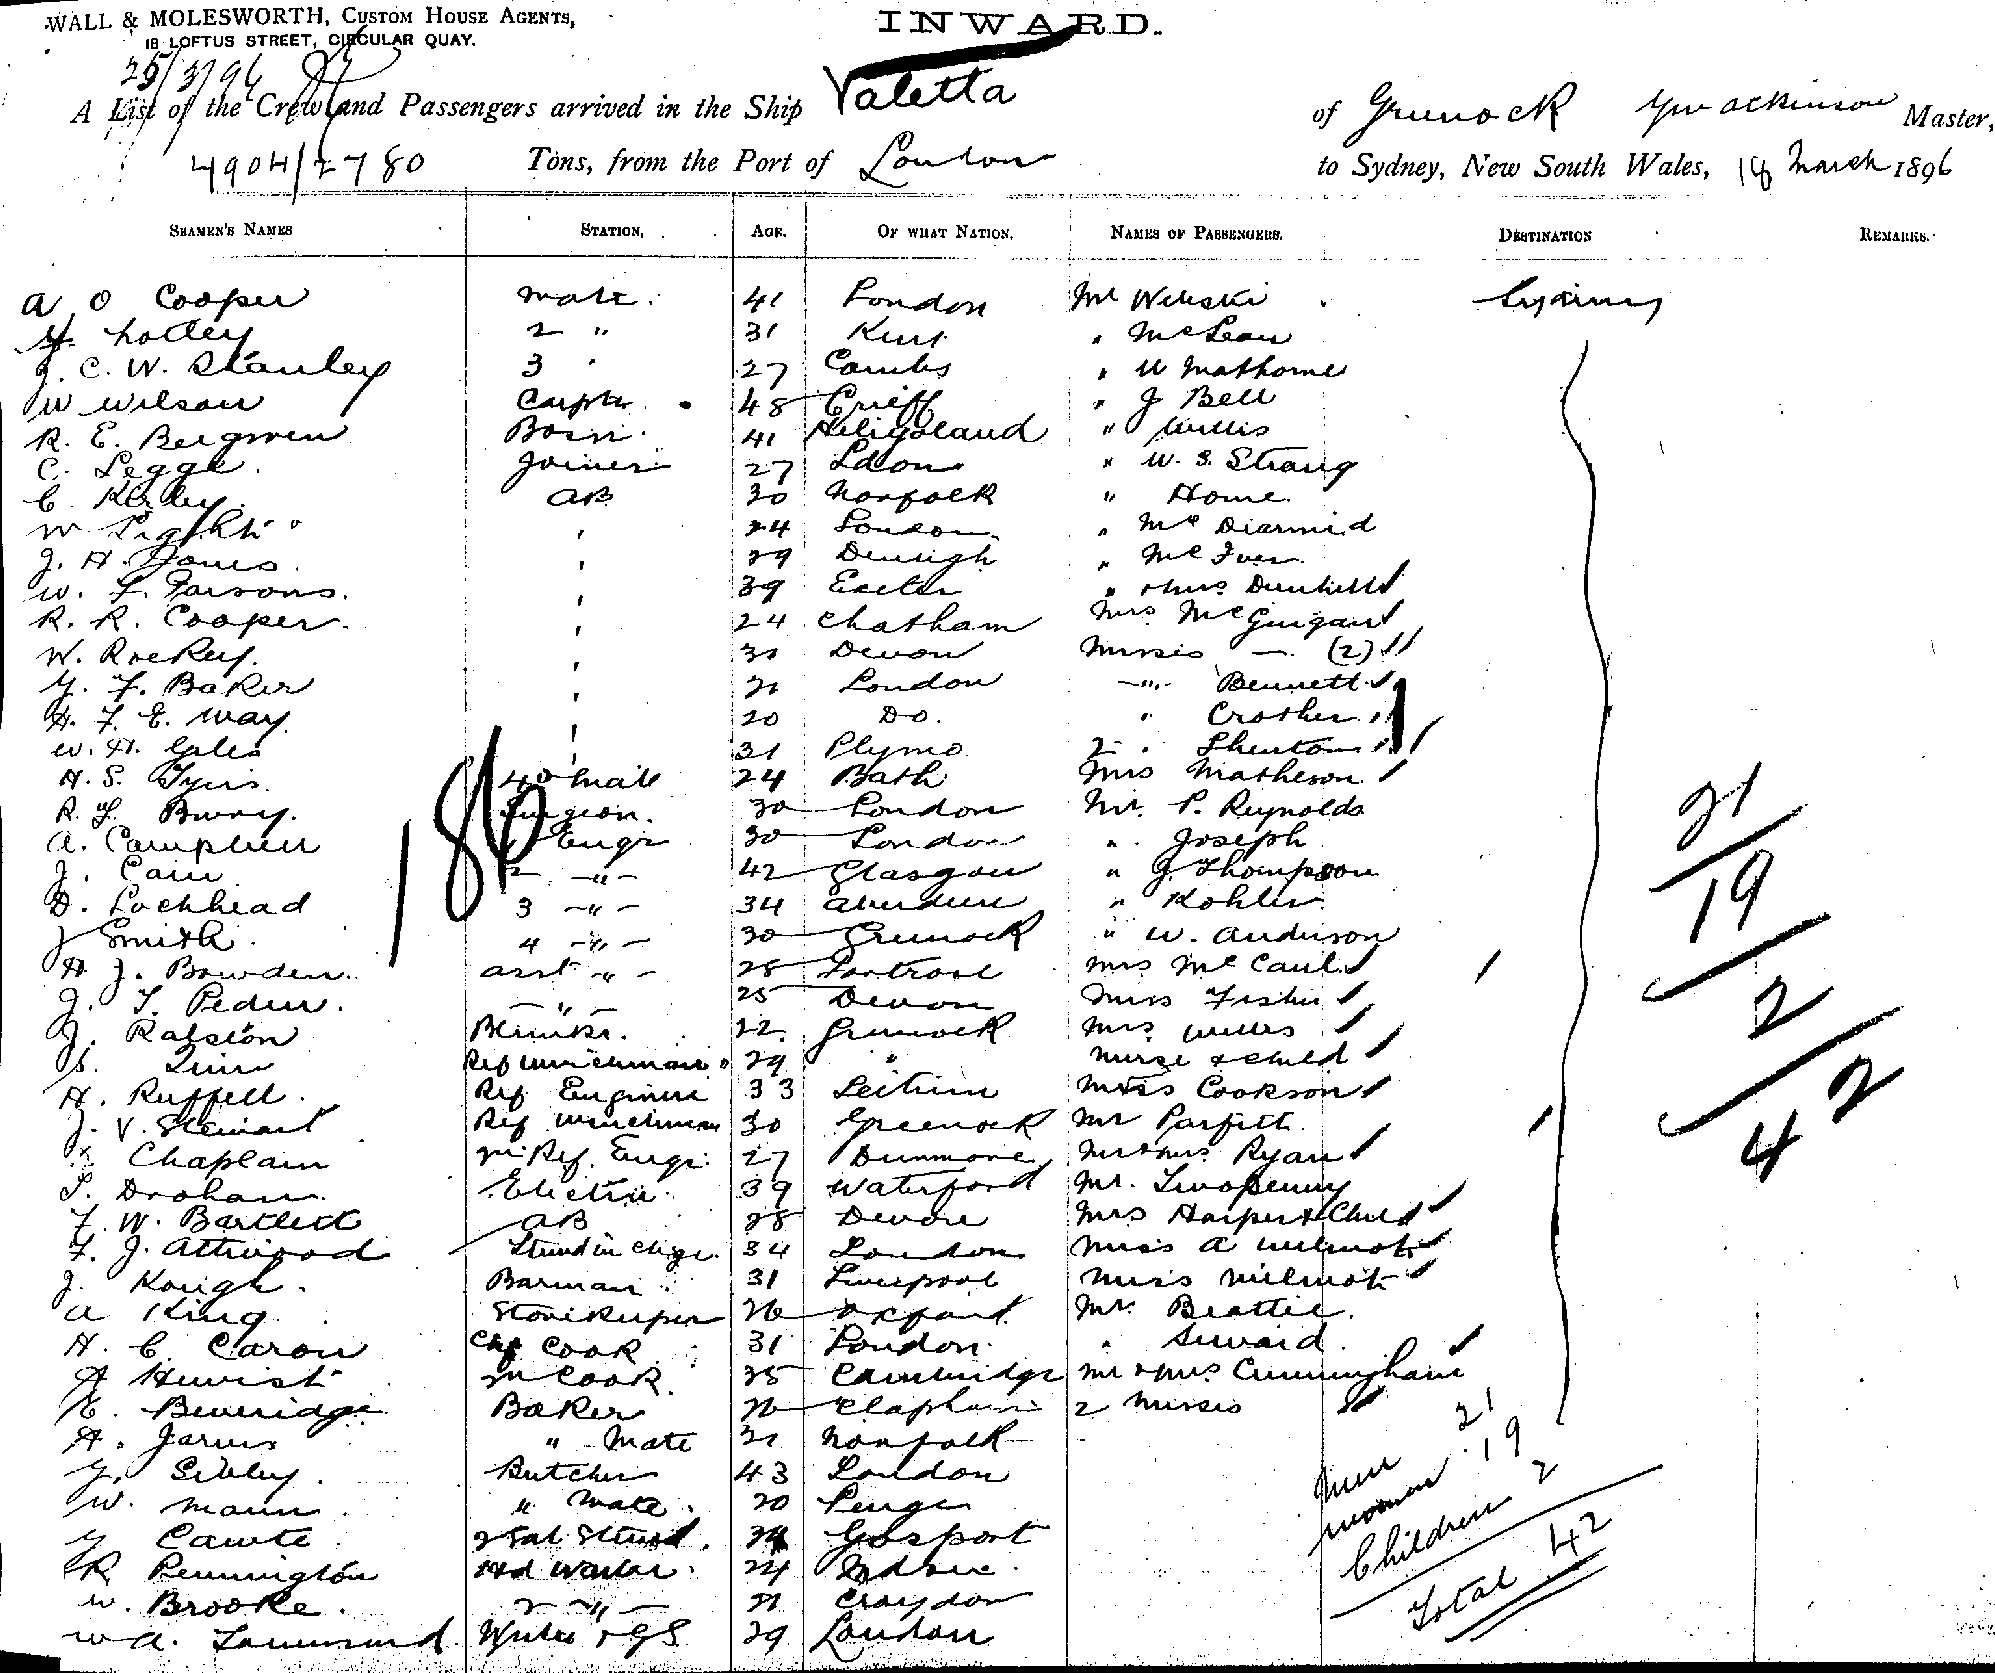 WALL & MOLESWORTH, CUSTOM HOUSE AGENTS,
18 LOFTUS STREET, CIRCULAR QUAY.
INWARD.
25/3/96
A List of the Crew and Passengers arrived in the Ship Valetta of Greenock Master,
4904/2780 Tons, from the Port of London to Sydney, New South Wales, 18 March 1896
SEAMEN'S NAMES STATION, AGE. OF WHAT NATION. NAMES OF PASSENGERS. DESTINATION REMARKS.
A O Cooper Mate. 41 London Mr Sydney
2 " 31 Kent " McLean
J. C. W. Stanley 3 " 27 Cambs "
W Wilson Carptr. 48 Crieff " J Bell
R. E. Bosn. 41 Heligoland " Willis
C. Legge. Joiner 27 Ldon " W. S. Strang
C AB 30 Norfolk " Home
W ' 24 London " McDiarmid
J. H. Jones ' 29 Denbigh " McIver
W. F. Parsons. ' 39 Exeter " & Mrs Dunhill
R. R. Cooper. ' 24 Chatham Mrs McGuigan
W. ' 31 Devon Misses — (2)
G. F. Baker ' 21 London —"— Bennett
H. F. E. Way. ' 20 Do. " Crother
W. H. ' 31 Plymo 2 "
H. S. Tyers. 4th Mate 24 Bath Mrs Matheson
R. Surgeon. 30 London Mr. P. Reynolds
A. Campbell 1 Engr 30 London " Joseph
J. Cain 2 —"— 42 Glasgow " J. Thompson
D. Lochhead 3 —"— 34 Aberdeen " Kohler
J Smith. 4 —"— 30 Greenock " W. Anderson
H J. Bowden. asst —"— 28 Mrs McCaul
J. T. —"— 25 Devon Miss Fisher
J. Ralston 22 Greenock Mrs Willis
29 " Nurse & child
H. Ruffell. Ref. Engineer 33 Leitrim Miss Cookson
J. V. Stewart Ref 30 Greenock Mr Parfitt
Chaplain Ref. Engr. 27 Dunmore Mr & Mrs Ryan
Drohan. Electrn. 39 Waterford Mr. Twopenny
F. W. Bartlett AB 28 Devon Mrs Harper & Child
F. J. Attwood Stewd in chge. 34 London Miss A Wilmot
J. Keough. Barman 31 Liverpool Miss Wilmot
A King Storekeeper 26 Oxford Mr. Beattie.
H. C. Caron Chf Cook 31 London. " Seward.
2n Cook. 35 Cambridge Mr & Mrs Cunningham
E. Beveridge Baker 26 Clapham 2 Misses
H. Jarvis " Mate 21 Norfolk
G. Sibley. Butcher 43 London
W. Mann " Mate. 20 Penge
G Cawte 2 Sal Stewd. Gosport
R Pennington Hd Waiter. 24
W. Brooke. 2 —"— 21 Croydon
W A. Townsend 29 London
186
21
19
2
42
Men 21
Women 19
Children 2
Total 42